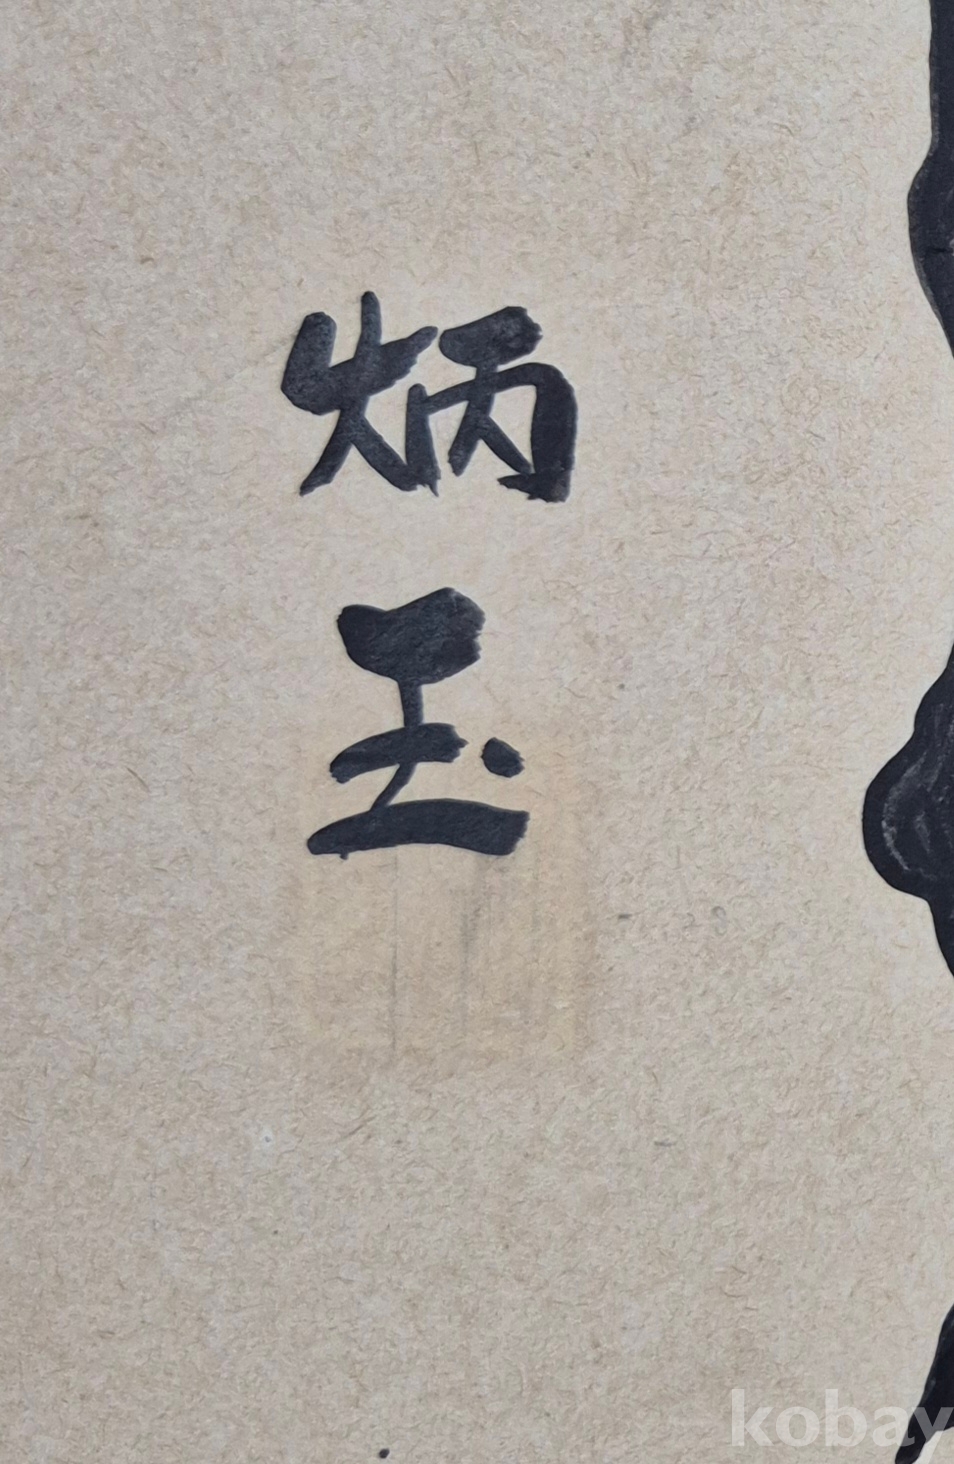 炳
玉
kobay